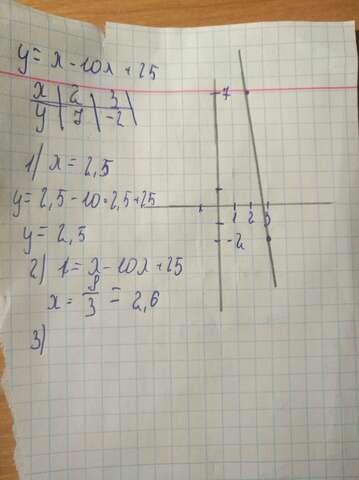 y = x - 10x + 25
x | 2 | 3 |
y | 7 | -2 |
1) x = 2,5
y = 2,5 - 10 · 2,5 + 25
y = 2,5
2) 1 = x - 10x + 25
x = 8/3 = 2,6
3)
7
1 1 2 3
-2